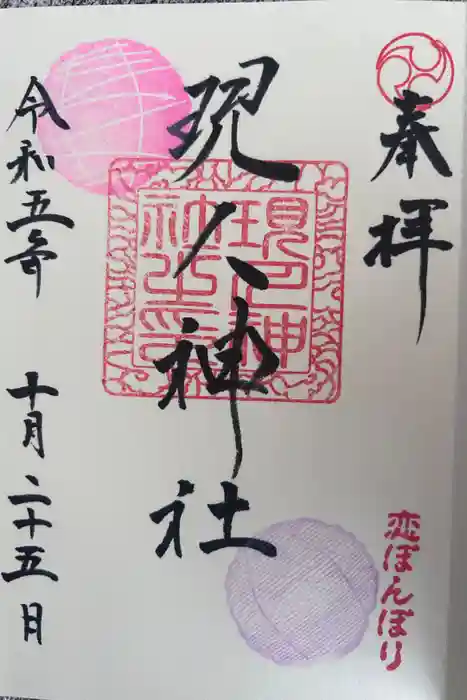 奉拝
現人神社
現人神社之印
令和五年 十月二十五日
恋ぼんぼり